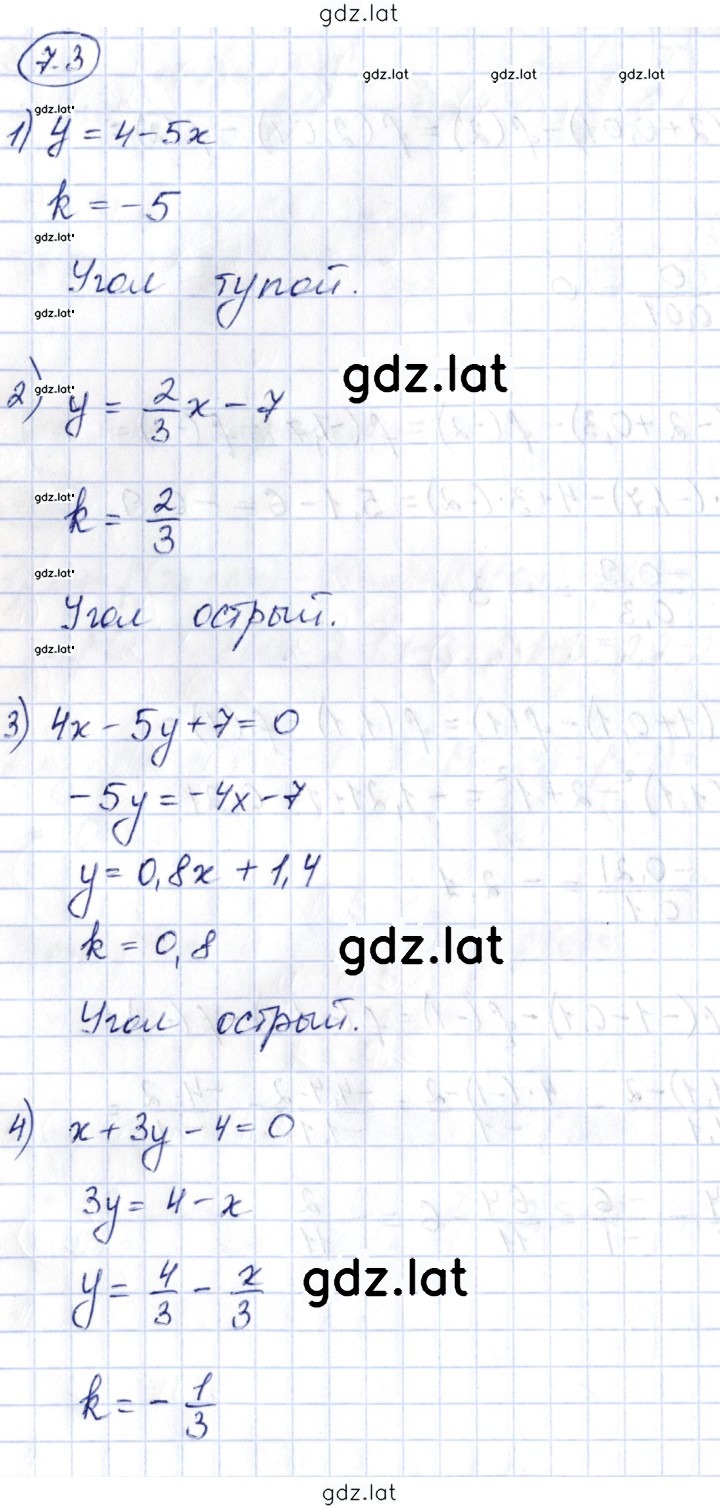 gdz.lat
7.3
gdz.lat gdz.lat gdz.lat
gdz.lat
1) y = 4 - 5x
k = -5
gdz.lat
Угол тупой.
gdz.lat
gdz.lat
2) y = 2/3 x - 7
gdz.lat
gdz.lat
k = 2/3
gdz.lat
Угол острый.
gdz.lat
3) 4x - 5y + 7 = 0
-5y = -4x - 7
y = 0,8x + 1,4
k = 0,8
gdz.lat
Угол острый.
4) x + 3y - 4 = 0
3y = 4 - x
y = 4/3 - x/3
gdz.lat
k = - 1/3
gdz.lat